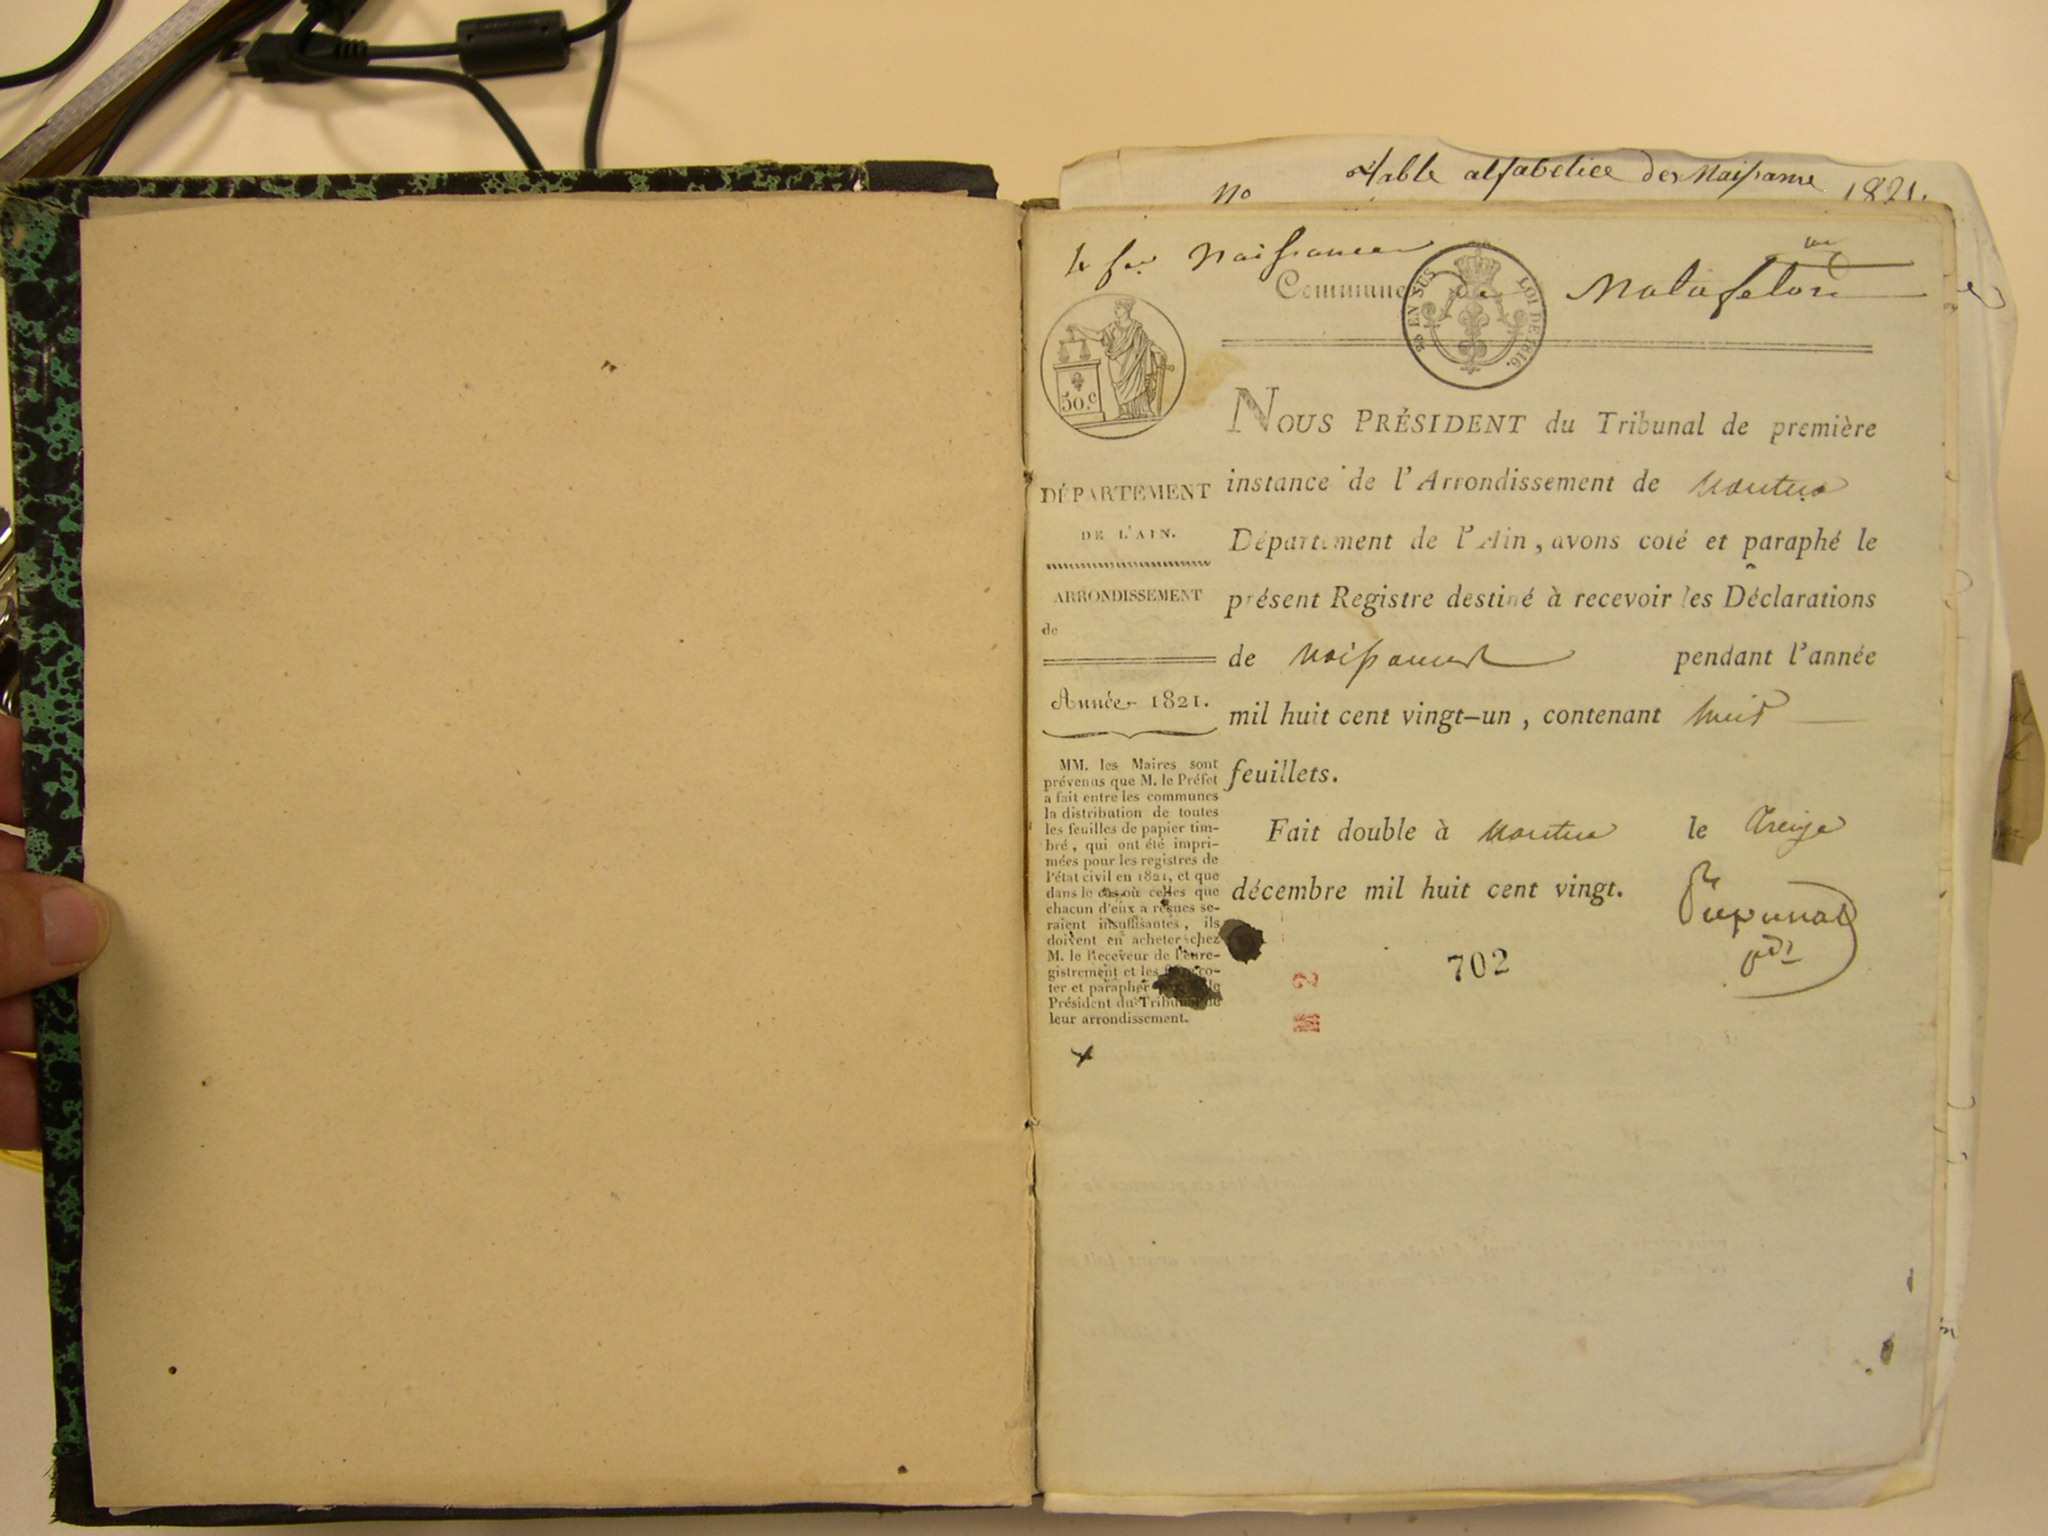 Table alfabetice des Naissance 1821.
No
1er fer Naissances
Commune de Matafelon
EN SUS LOI DE 1816.
50.c
NOUS PRÉSIDENT du Tribunal de première
instance de l'Arrondissement de Nantua
Département de l'Ain, avons coté et paraphé le
présent Registre destiné à recevoir les Déclarations
de Naissances pendant l'année
mil huit cent vingt-un, contenant huit
feuillets.
Fait double à Nantua le treize
décembre mil huit cent vingt.
702
2
DÉPARTEMENT
DE L'AIN.
ARRONDISSEMENT
de
Année 1821.
MM. les Maires sont
prévenus que M. le Préfet
a fait entre les communes
la distribution de toutes
les feuilles de papier tim-
bré, qui ont été impri-
mées pour les registres de
l'état civil en 1821, et que
dans le cas où celles que
chacun d'eux a reçues se-
raient insuffisantes, ils
doivent en acheter chez
M. le Receveur de l'enre-
gistrement et les faire co-
ter et parapher le
Président du Tribunal de
leur arrondissement.